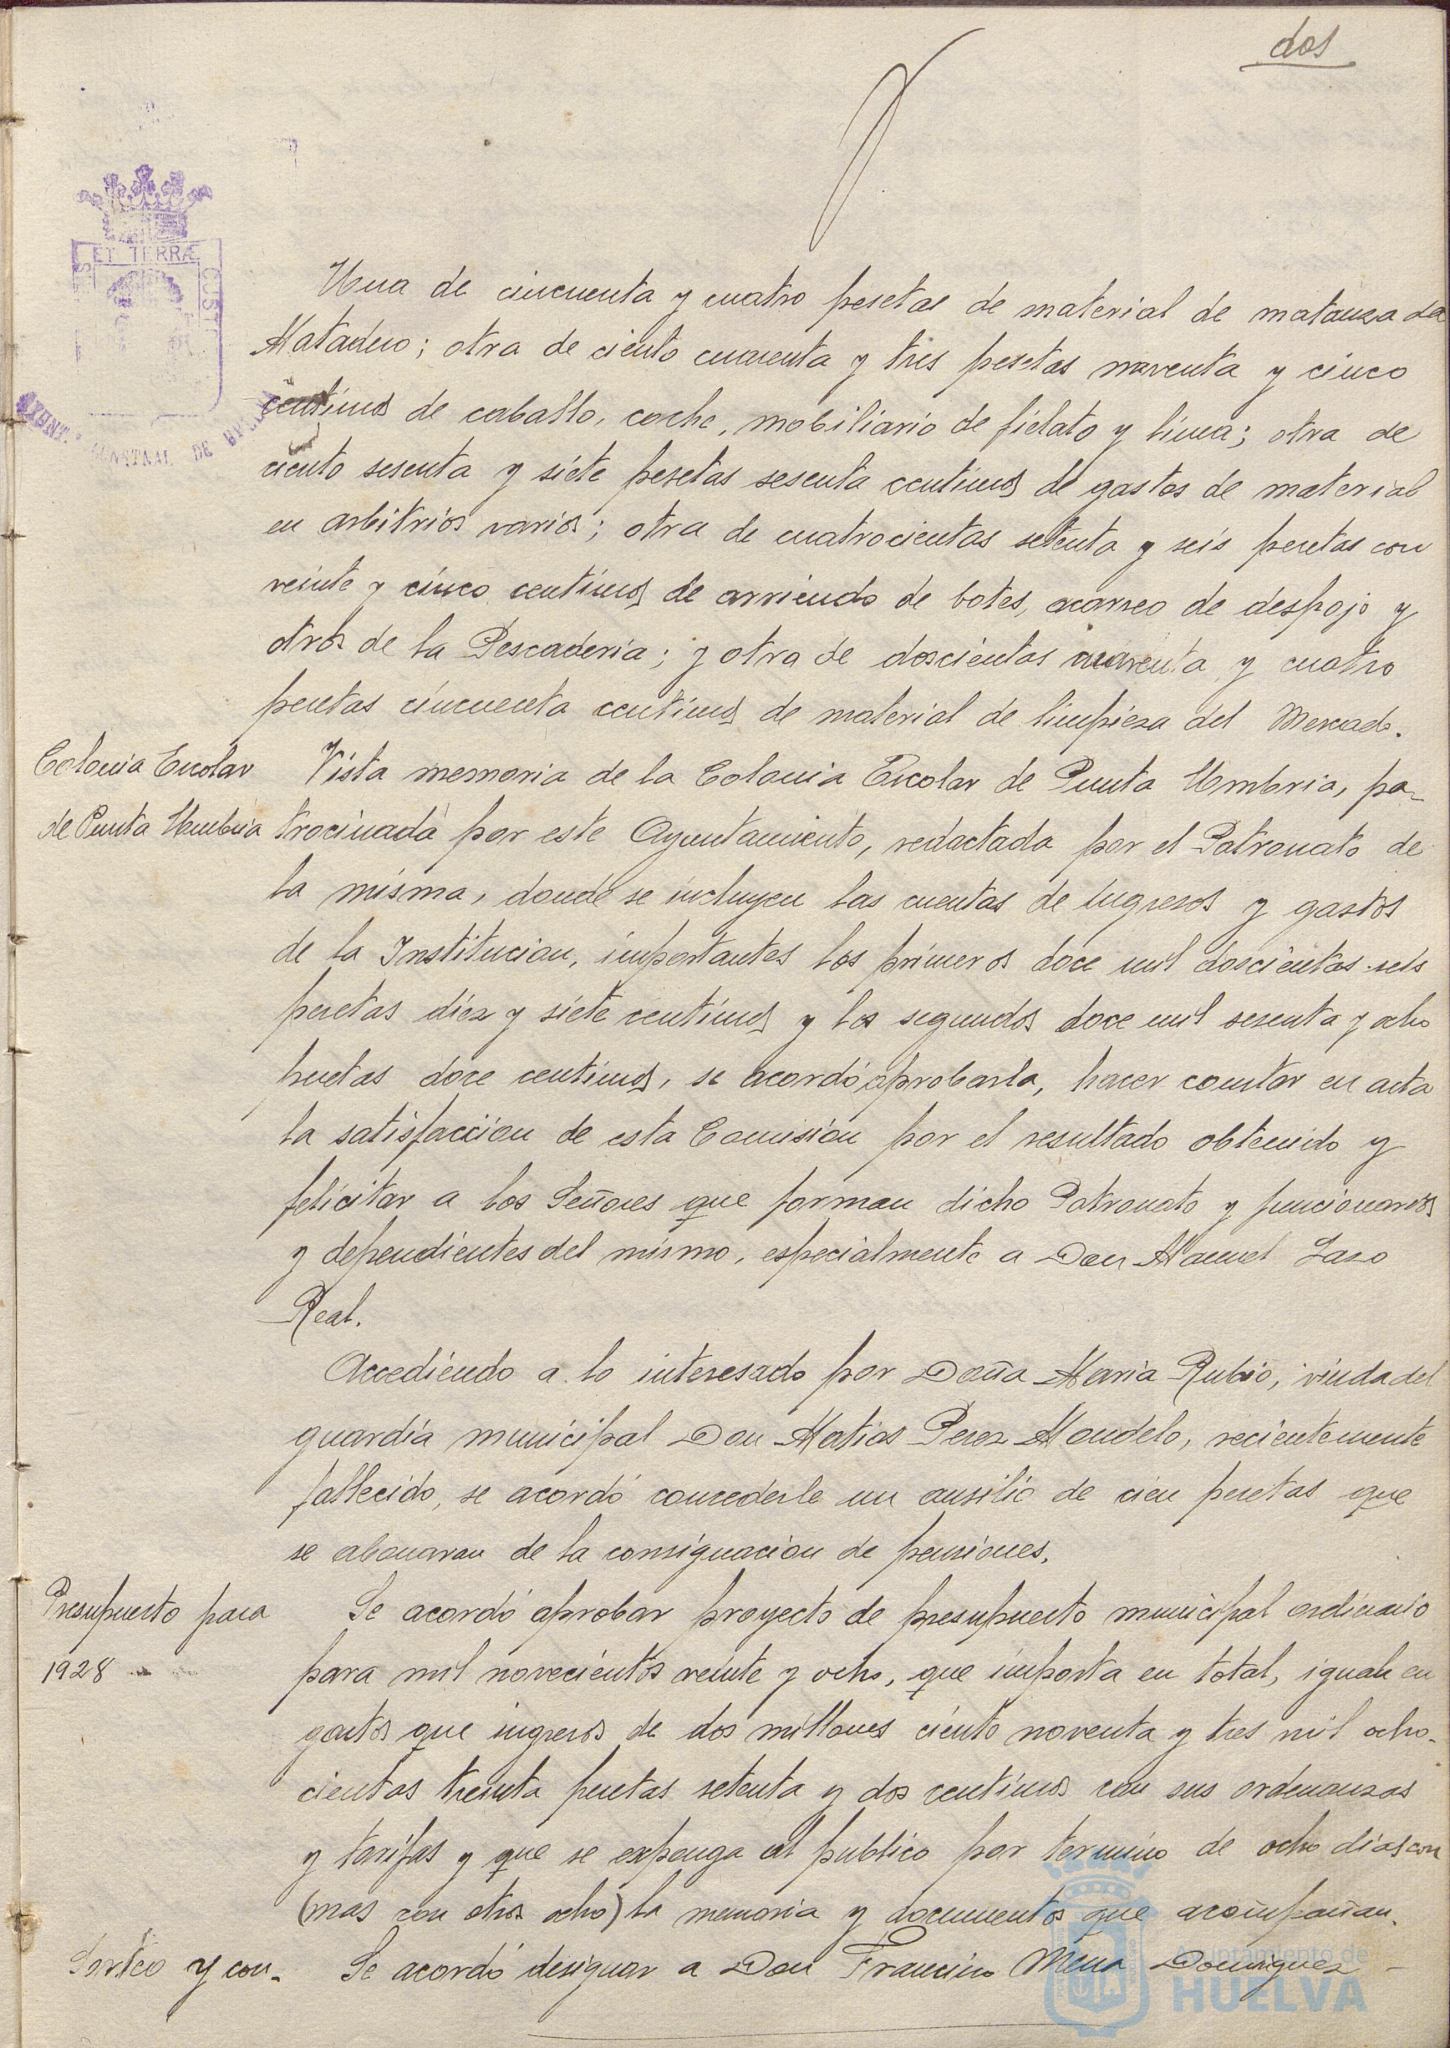 dos
ET TERRÆ CUST
Una de cincuenta y cuatro pesetas de material de matanza de
Matadero; otra de ciento cuarenta y tres pesetas noventa y cinco
centimos de caballo, coche, mobiliario de fielato y linea; otra de
ciento sesenta y siete pesetas sesenta centimos de gastos de material
en arbitrios varios; otra de cuatrocientas setenta y seis pesetas con
veinte y cinco centimos de arriendo de botes, acarreo de despojo y
otros de la Pescaderia; y otra de doscientas cuarenta y cuatro
pesetas cincuenta centimos de material de limpieza del Mercado.
Colonia Escolar
de Punta Umbria
Vista memoria de la Colonia Escolar de Punta Umbria, pa-
trocinada por este Ayuntamiento, redactada por el Patronato de
la misma, donde se incluyen las cuentas de ingresos y gastos
de la Institucion, importantes los primeros doce mil doscientas seis
pesetas diez y siete centimos y los segundos doce mil sesenta y ocho
pesetas doce centimos, se acordó aprobarla, hacer constar en acta
la satisfaccion de esta Comision por el resultado obtenido y
felicitar a los Señores que forman dicho Patronato y funcionarios
y dependientes del mismo, especialmente a Don Manuel Lazo
Real.
Accediendo a lo interesado por Doña Maria Rubio, viuda del
guardia municipal Don Matias Perez Mondelo, recientemente
fallecido, se acordó concederle un ausilio de cien pesetas que
se abonaran de la consignacion de pensiones.
Presupuesto para
1928
Se acordó aprobar proyecto de presupuesto municipal ordinario
para mil novecientos veinte y ocho, que importa en total, igual en
gastos que ingresos de dos millones ciento noventa y tres mil ocho-
cientas treinta pesetas setenta y dos centimos con sus ordenanzas
y tarifas y que se exponga al publico por termino de ocho dias con
(mas con otros ocho) la memoria y documentos que acompañan.
Sorteo y con-
Se acordó designar a Don Francisco Mena Dominguez
Ayuntamiento de
HUELVA